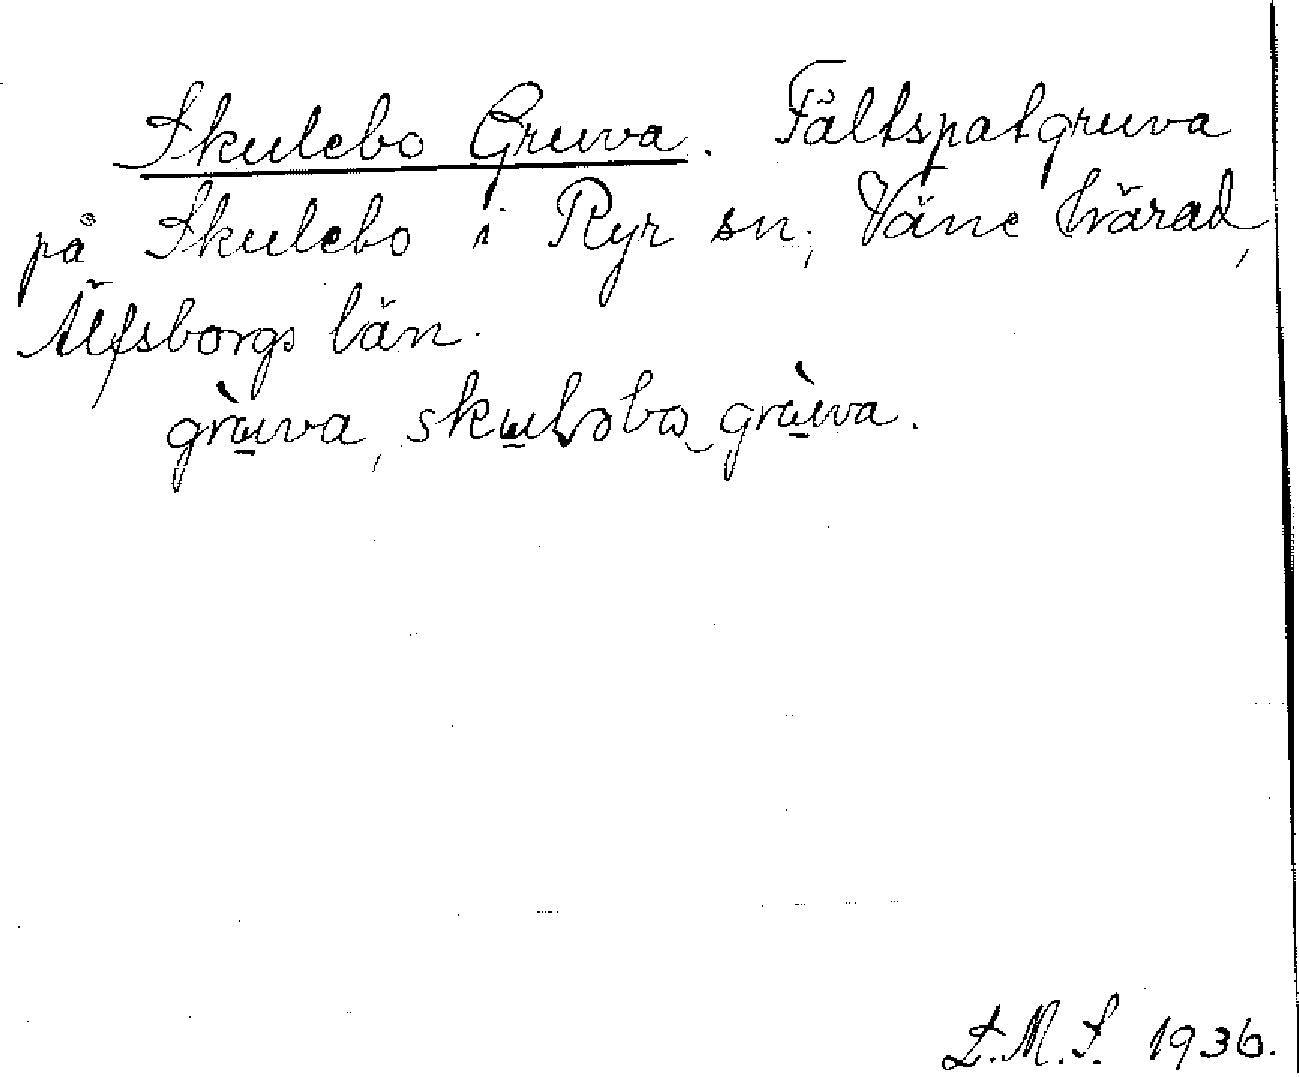 Skulebo Gruva. Fältspatgruva
på Skulebo i Ryr sn, Väne härad,
Älfsborgs län.
grùva, skuləbo grùva.
L.M.S. 1936.